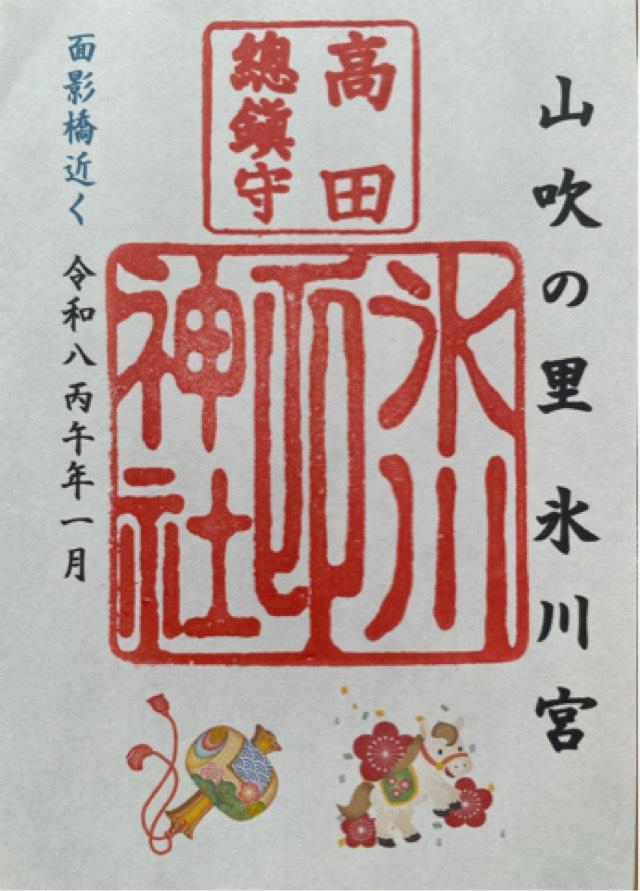 山吹の里 氷川宮
高田
總鎮守
氷川
神社
面影橋近く 令和八丙午年一月